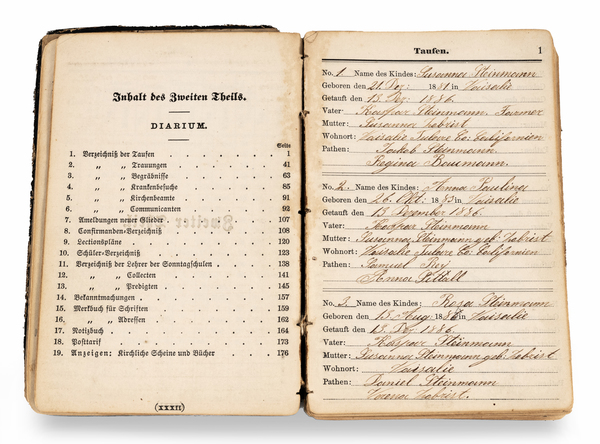 Inhalt des Zweiten Theils.
DIARIUM.
Seite
1. Verzeichniß der Taufen 1
2. „ „ Trauungen 41
3. „ „ Begräbnisse 63
4. „ „ Krankenbesuche 85
5. „ „ Kirchenbeamte 91
6. „ „ Communicanten 92
7. Ameldungen neuer Glieder 107
8. Confirmanden-Verzeichniß 108
9. Lectionspläne 120
10. Schüler-Verzeichniß 123
11. Verzeichniß der Lehrer der Sonntagschulen 138
12. „ „ Collecten 141
13. „ „ Predigten 145
14. Bekanntmachungen 157
15. Merkbuch für Schriften 159
16. „ „ Adressen 162
17. Notizbuch 164
18. Posttarif 173
19. Anzeigen; Kirchliche Scheine und Bücher 176
(XXXII)
Taufen. 1
No. 1 Name des Kindes: Susanna Steinmann
Geboren den 21. Dez: 1881 in Visalia
Getauft den 13. Dez. 1886.
Vater Kaspar Steinmann Farmer
Mutter: Susanna Hobrist
Wohnort: Visalia Tulare Co: Californien
Pathen: Jakob Steinmann
Regina Baumann.
No. 2 Name des Kindes: Anna Paulina
Geboren den 26. Okt: 1883 in Visalia
Getauft den 13. Dezember 1886.
Vater: Kaspar Steinmann
Mutter: Susanna Steinmann geb: Hobrist
Wohnort: Visalia Tulare Co: Californien
Pathen: Samuel
Anna
No. 3 Name des Kindes: Rosa Steinmann
Geboren den 13. Aug: in Visalia
Getauft den 13. Dez. 1886.
Vater: Kaspar Steinmann
Mutter: Susanna Steinmann geb: Hobrist
Wohnort: Visalia
Pathen: Daniel Steinmann
Verena Hobrist.